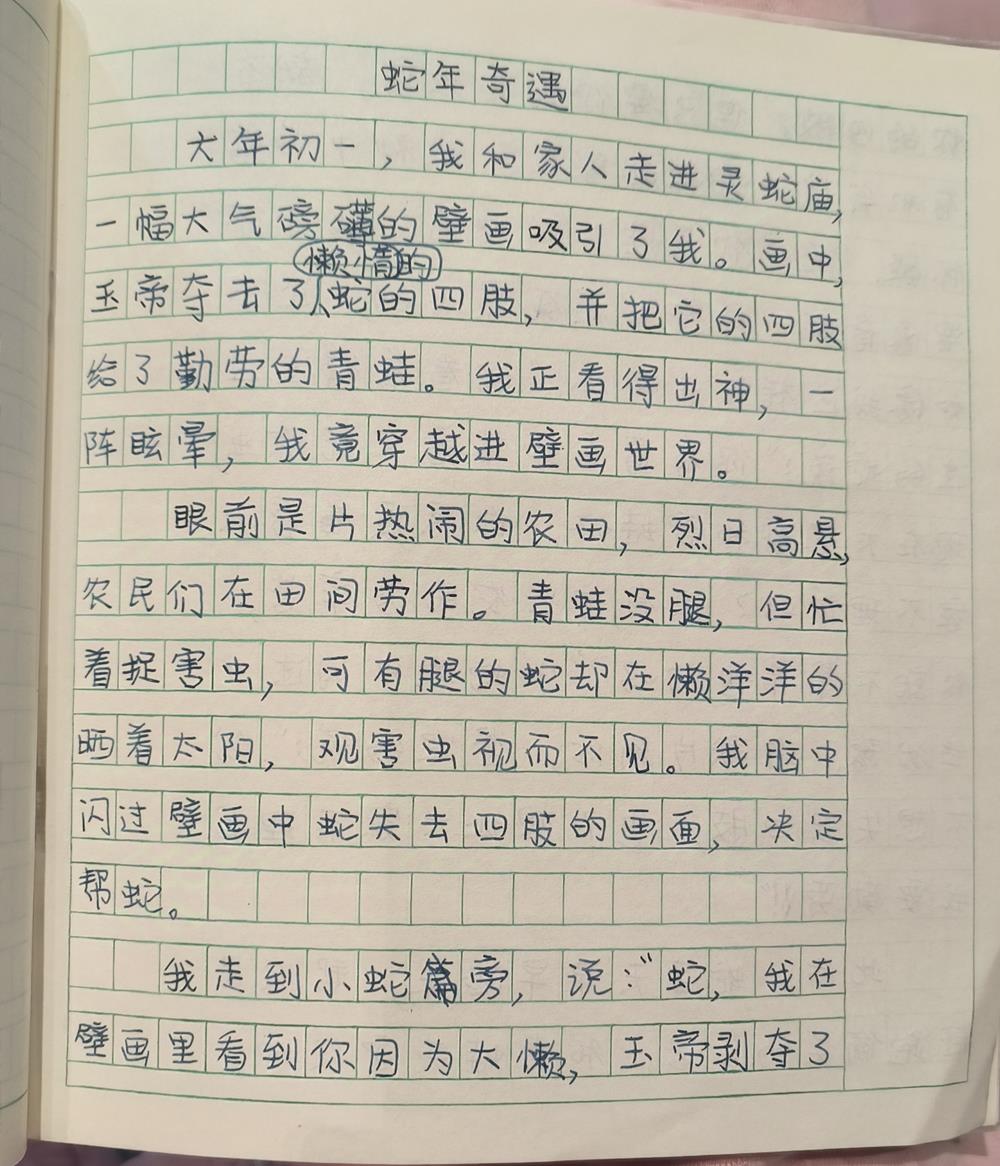 蛇年奇遇
大年初一，我和家人走进灵蛇庙，
一幅大气磅礴的壁画吸引了我。画中，
懒惰的
玉帝夺去了蛇的四肢，并把它的四肢
给了勤劳的青蛙。我正看得出神，一
阵眩晕，我竟穿越进壁画世界。
眼前是片热闹的农田，烈日高悬，
农民们在田间劳作。青蛙没腿，但忙
着捉害虫，可有腿的蛇却在懒洋洋的
晒着太阳，观害虫视而不见。我脑中
闪过壁画中蛇失去四肢的画面，决定
帮蛇。
我走到小蛇旁，说：“蛇，我在
壁画里看到你因为大懒，玉帝剥夺了